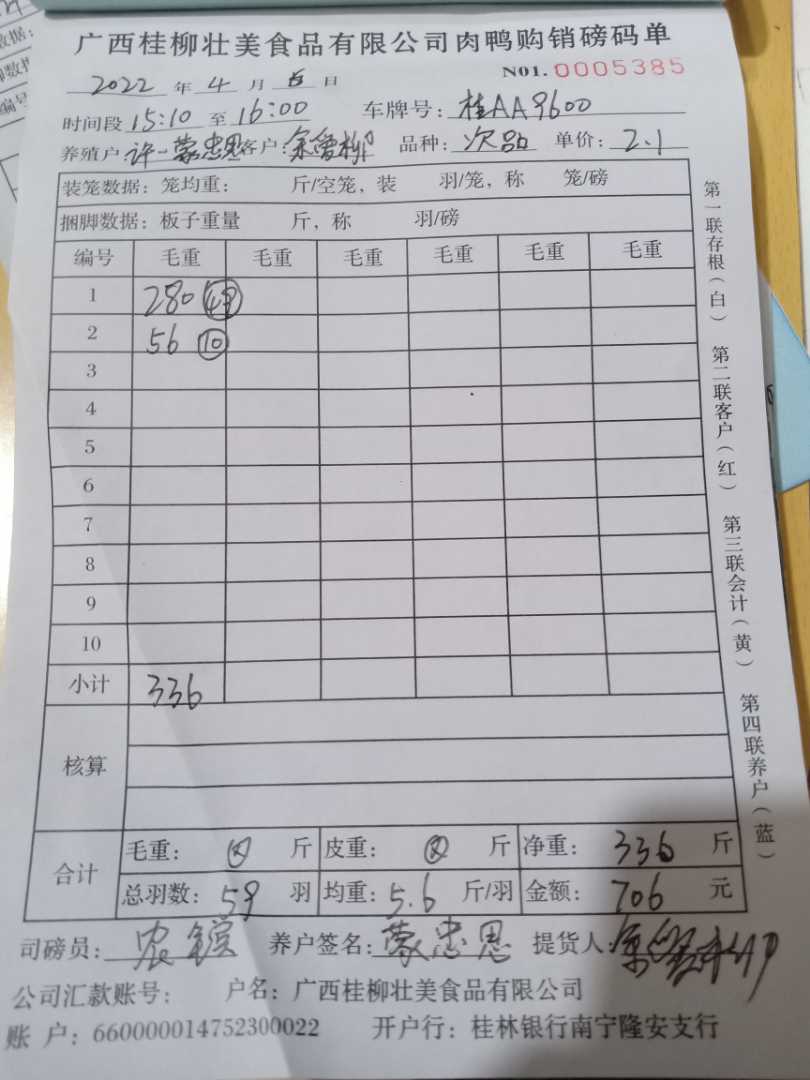 广西桂柳壮美食品有限公司肉鸭购销磅码单
2022 年 4 月 5 日 N01. 0005385
时间段 15:10 至 16:00 车牌号: 桂AA9600
养殖户 许一蒙忠恩 客户: 余 柳 品种: 次品 单价: 2.1
装笼数据: 笼均重: 斤/空笼, 装 羽/笼, 称 笼/磅
捆脚数据: 板子重量 斤, 称 羽/磅
编号 毛重 毛重 毛重 毛重 毛重 毛重
1 280 49
2 56 10
3
4
5
6
7
8
9
10
小计 336
核算
合计
毛重: 斤 皮重: 斤 净重: 336 斤
总羽数: 59 羽 均重: 5.6 斤/羽 金额: 706 元
司磅员: 农 养户签名: 蒙忠恩 提货人:
公司汇款账号: 户名: 广西桂柳壮美食品有限公司
账 户: 660000014752300022 开户行: 桂林银行南宁隆安支行
第一联存根(白) 第二联客户(红) 第三联会计(黄) 第四联养户(蓝)
数据:
编号